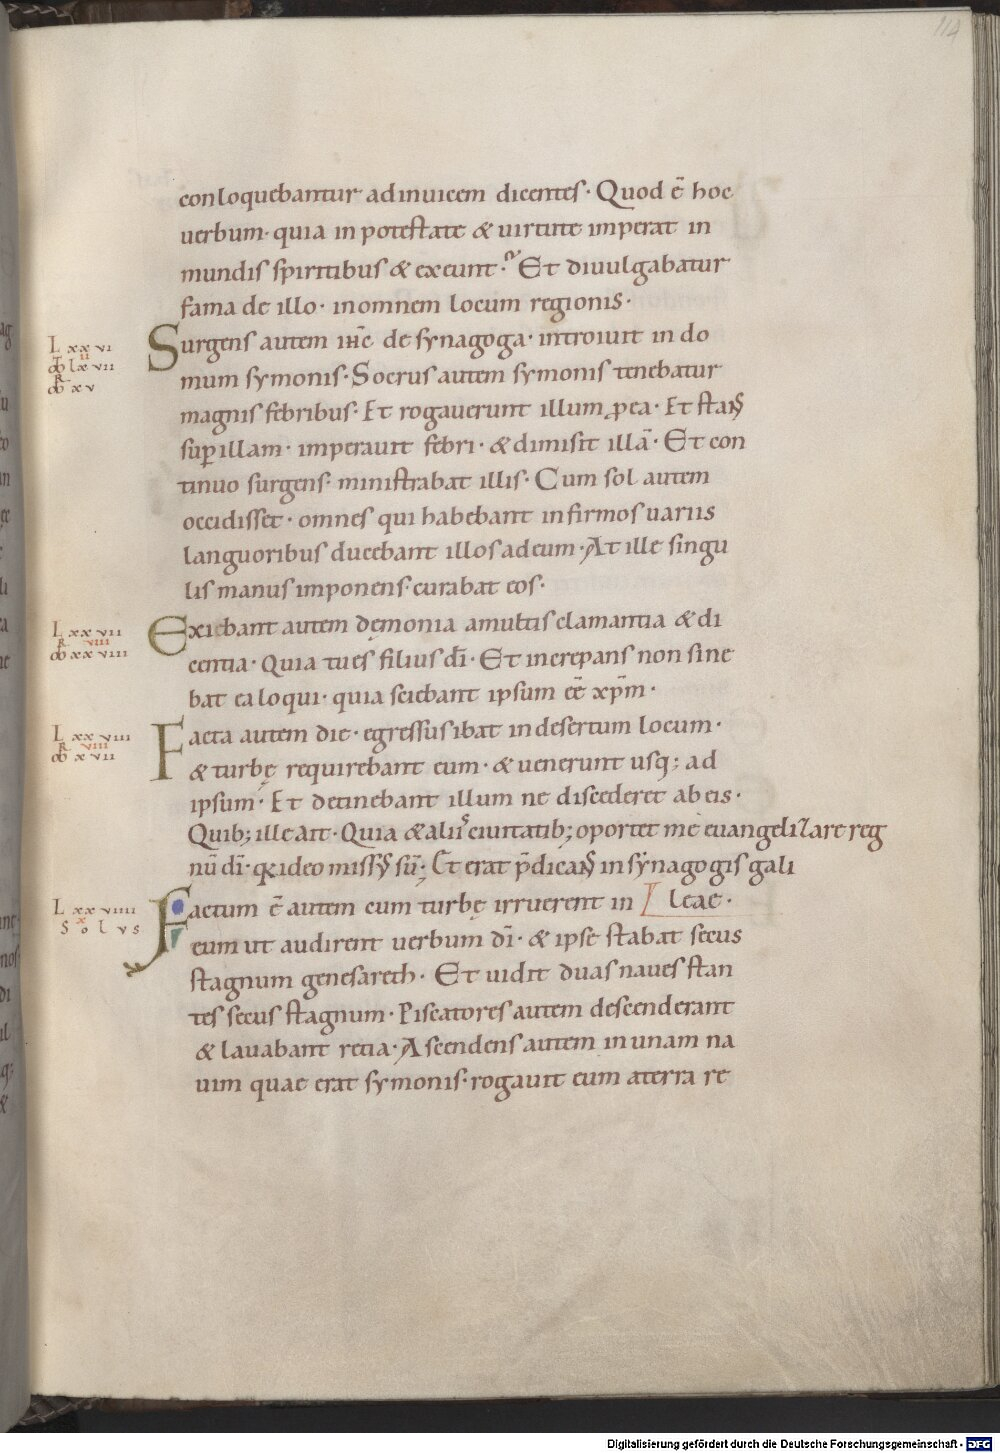 114
conloquebantur adinuicem dicentes· Quod ē hoc
uerbum· quia in potestate & uirtute imperat in
mundis spiritibus & exeunt· Et diuulgabatur
fama de illo· inomnem locum regionis·
L xxvi
Surgens autem ihc̄ de synagoga· introiuit in do
mum symonis· Socrus autem symonis tenebatur
magnis febribus· Et rogauerunt illum ꝓ ea· Et stans
suꝑ illam· imperauit febri· & dimisit illā· Et con
tinuo surgens· ministrabat illis· Cum sol autem
occidisset· omnes qui habebant infirmos uariis
languoribus ducebant illos adeum· At ille singu
lis manus imponens· curabat eos·
L xxvii
R viii
Exiebant autem dęmonia amultis clamantia & di
centia· Quia tu es filius dī· Et increpans non sine
bat ea loqui· quia sciebant ipsum eē xp̄m·
L xxviii
R viii
Facta autem die· egressus ibat in desertum locum·
& turbę requirebant eum· & uenerunt usq; ad
ipsum· Et detinebant illum ne discederet ab eis·
Quib; ille ait· Quia & aliis ciuitatib; oportet me euangelizare reg
nū dī· qa ideo missus sū· Et erat p̄dicans in synagogis gali
L xxviiii
x
Solus
Factum ē autem cum turbę irruerent in leae·
eum ut audirent uerbum dī· & ipse stabat secus
stagnum genesareth· Et uidit duas naues stan
tes secus stagnum· Piscatores autem descenderant
& lauabant retia· Ascendens autem in unam na
uim quae erat symonis· rogauit eum aterra re
Digitalisierung gefördert durch die Deutsche Forschungsgemeinschaft - DFG